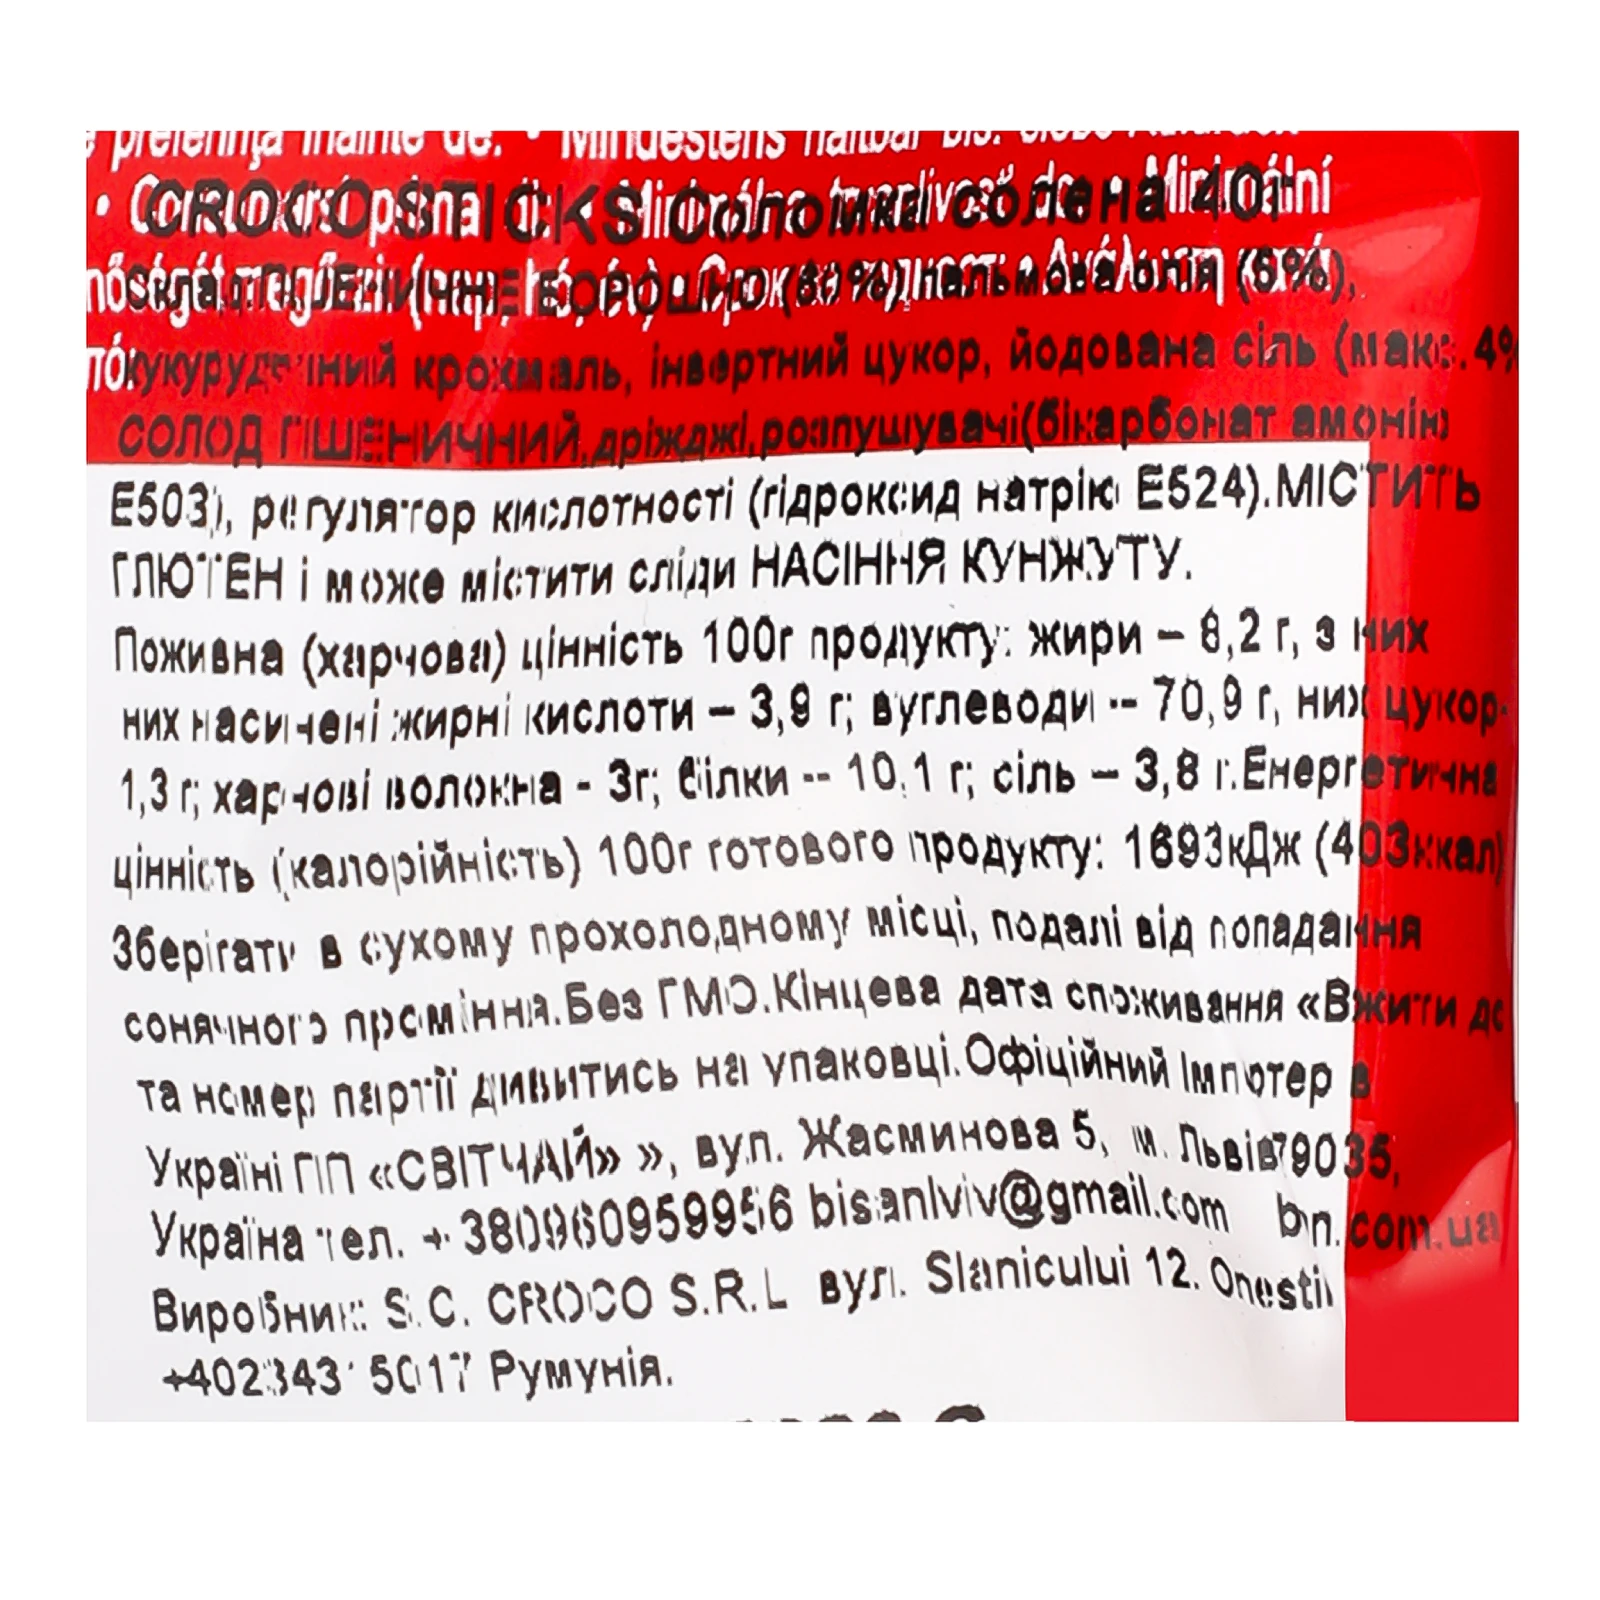 preferința înainte de. • Mindestens haltbar bis:
CROCO STICKS Соломка солена 40г
Склад: ПШЕНИЧНЕ БОРОШНО пальмова олія (5%),
кукурудзяний крохмаль, інвертний цукор, йодована сіль (макс.4%
СОЛОД ПШЕНИЧНИЙ,дріжджі,розпушувачі(бікарбонат амонію
Е503), регулятор кислотності (гідроксид натрію Е524).МІСТИТЬ
ГЛЮТЕН і може містити сліди НАСІННЯ КУНЖУТУ.
Поживна (харчова) цінність 100г продукту: жири – г, з них
них насичені жирні кислоти – 3,9 г; вуглеводи -- 70,9 г, них цукор-
1,3 г; харчові волокна - 3г; білки -- 10,1 г; сіль – 3,8 г.Енергетична
цінність (калорійність) 100г готового продукту: 1693кДж (403ккал)
Зберігати в сухому прохолодному місці, подалі від попадання
сонячного проміння.Без ГМО.Кінцева дата споживання «Вжити до
та номер партії дивитись на упаковці.Офіційний Імпотер в
Україні ПП «СВІТЧАЙ» », вул. Жасминова 5, м. Львів79035,
Україна тел. + 380960959956 bisanlviv@gmail.com com.ua
Виробник: S.C. CROCO S.R.L вул. Slanicului 12. Onesti
Румунія.